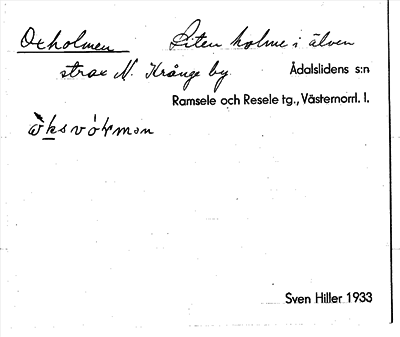 Oxholmen Liten holme i älven
strax N. Krånge by Ådalslidens s:n
Ramsele och Resele tg., Västernorrl. l.
Sven Hiller 1933